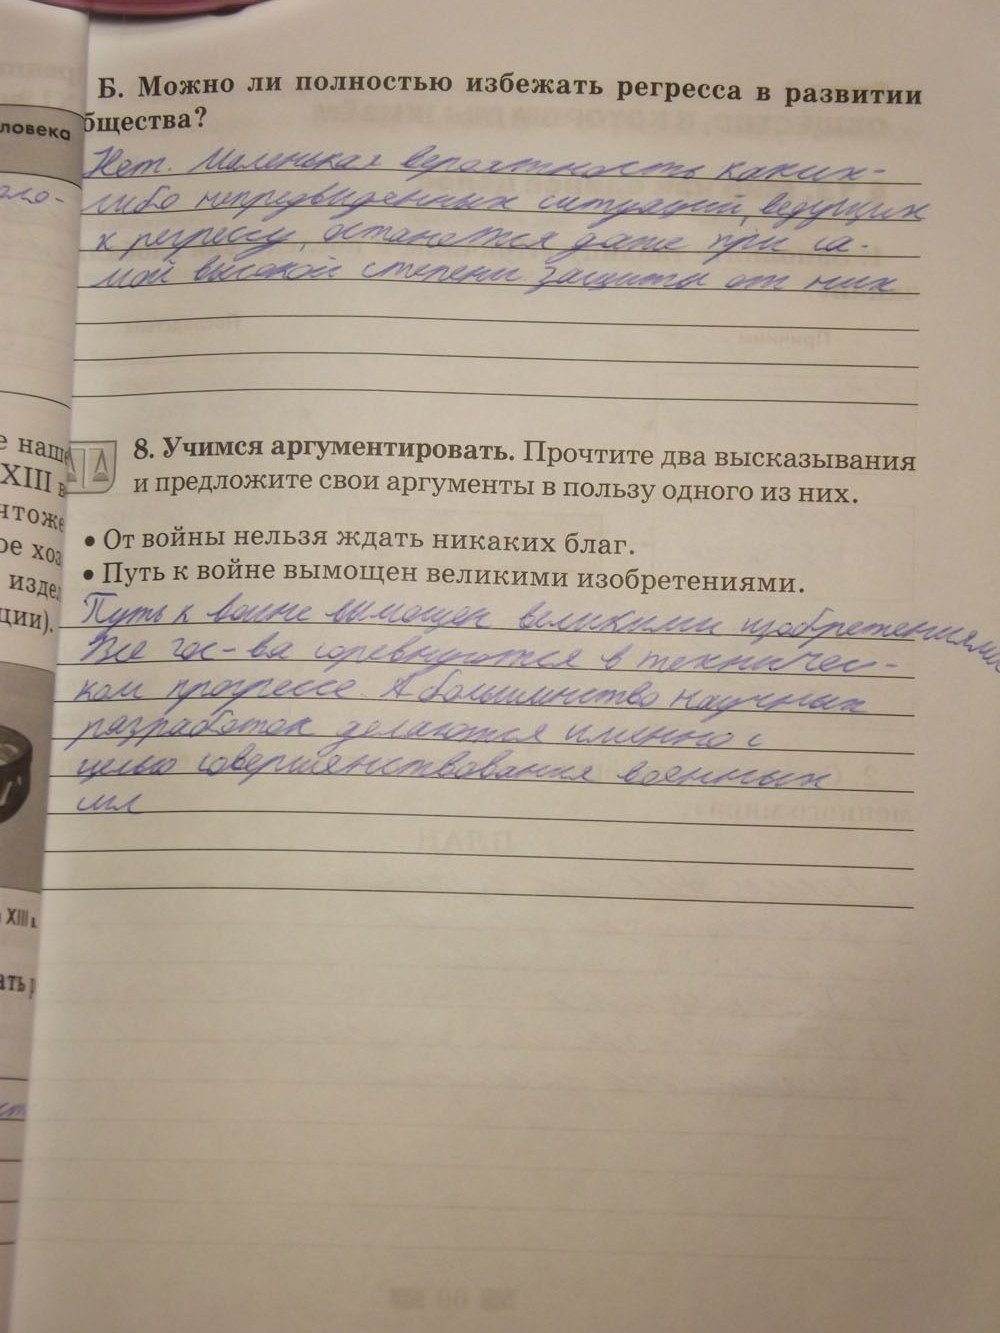 Б. Можно ли полностью избежать регресса в развитии
бщества?
ловека
Нет. Маленькая вероятность каких-
либо непредвиденных ситуаций, ведущих
к регрессу, останется даже при са-
мой высокой степени защиты от них
е наше
XIII в
чтоже
ое хоз
изде
ции).
8. Учимся аргументировать. Прочтите два высказывания
и предложите свои аргументы в пользу одного из них.
• От войны нельзя ждать никаких благ.
• Путь к войне вымощен великими изобретениями.
Путь к войне вымощен великими изобретениями
Все гос-ва соревнуются в техничес-
ком прогрессе. А большинство научных
разработок делаются именно с
целью совершенствования военных
XIII в.
ать р